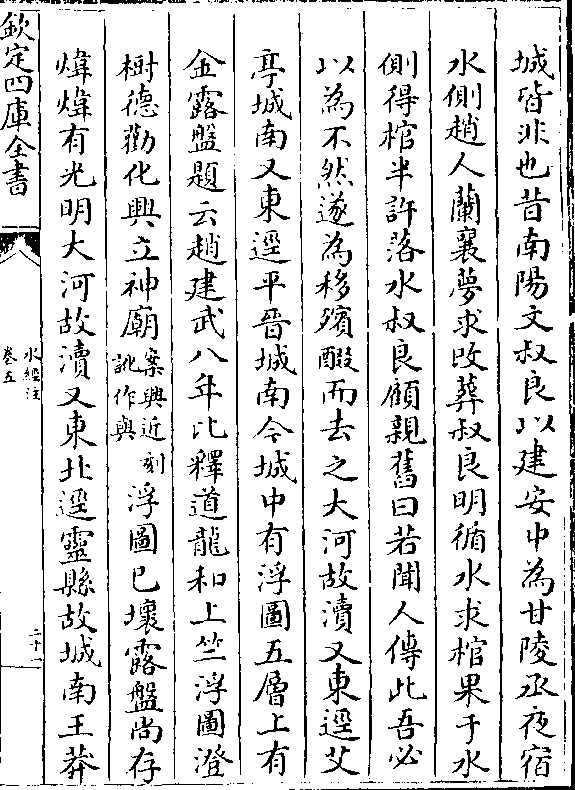 城皆非也昔南陽文叔良以建安中為甘陵丞夜宿
水側趙人蘭襄夢求改葬叔良明循水求棺果于水
側得棺半許落水叔良顧親舊曰若聞人傳此吾必
以為不然遂為移殯醊而去之大河故瀆又東逕艾
亭城南又東逕平晉城南今城中有浮圖五層上有
金露盤題云趙建武八年比釋道龍和上竺浮圖澄
樹德勸化興立神廟案興近刻訛作與浮圖已壞露盤尚存
煒煒有光明大河故瀆又東北逕靈縣故城南王莽
欽定四庫全書
水經注
卷五
二十一